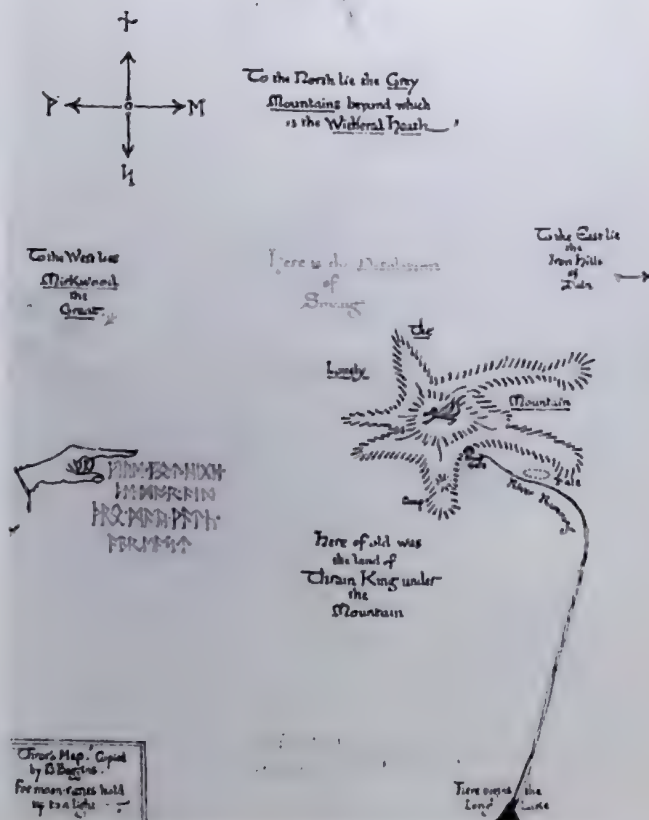 ᚾ
ᚹ ᛖ
ᛋ
To the North lie the Grey
Mountains beyond which
is the Withered Heath
To the West lies
Mirkwood
the
Great
Here is the Desolation
of
Smaug
To the East lie
the
Iron Hills
of
Dain
The
Lonely
Mountain
Gate
Dale
River Running
Here of old was
the land of
Thrain King under
the
Mountain
Thror's Map. Copied
by B. Baggins.
For moon-runes hold
up to a light
Here the
Long Lake